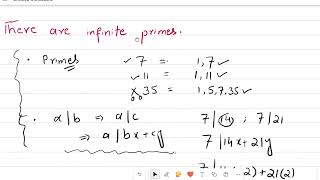 There are infinite primes.
• Primes ✓ 7 = 1, 7 ✓
✓ 11 = 1, 11 ✓
× 35 = 1, 5, 7, 35 ✓
• a|b ⇒ a|c 7|14 ; 7|21
⇒ a|bx+cy 7|14x+21y
2)+21(2)